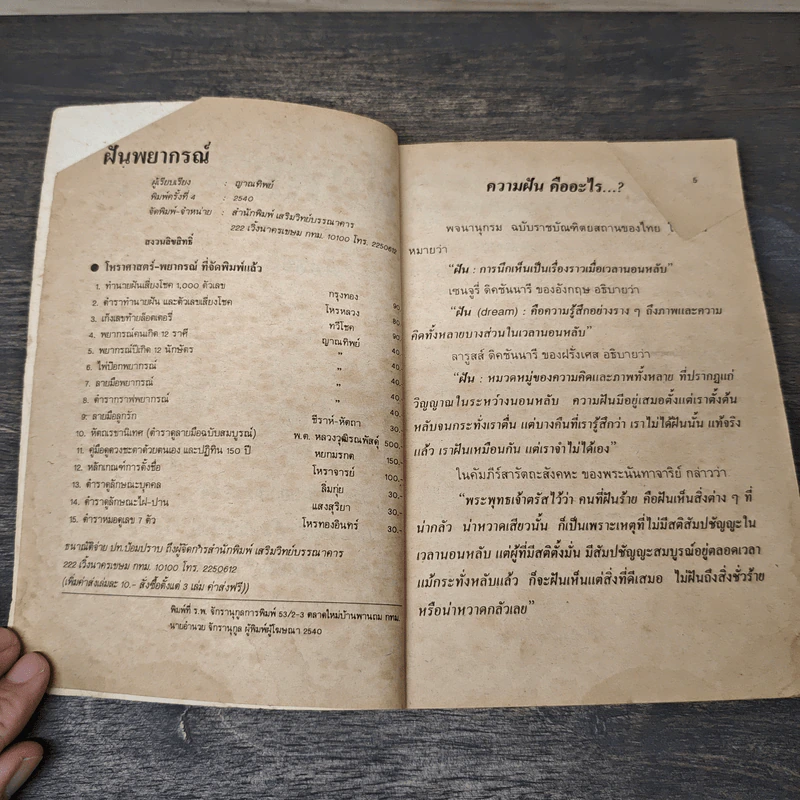 ฝันพยากรณ์
ผู้เรียบเรียง : ญาณทิพย์
พิมพ์ครั้งที่ 4 : 2540
จัดพิมพ์-จำหน่าย : สำนักพิมพ์ เสริมวิทย์บรรณาคาร
222 เวิ้งนาครเขษม กทม. 10100 โทร. 2250612
สงวนลิขสิทธิ์
● โหราศาสตร์-พยากรณ์ ที่จัดพิมพ์แล้ว
1. ทำนายฝันเสี่ยงโชค 1,000 ตัวเลข กรุงทอง 90
2. ตำราทำนายฝัน และตัวเลขเสี่ยงโชค โหรหลวง 80
3. เก็งเลขท้ายล็อตเตอรี่ ทวีโชค 40.
4. พยากรณ์คนเกิด 12 ราศี ญาณทิพย์ 40.
5. พยากรณ์ปีเกิด 12 นักษัตร " 40.
6. ไพ่ป๊อกพยากรณ์ " 40.
7. ลายมือพยากรณ์ " 40.
8. ตำรากราฟพยากรณ์ " 40.
9. ลายมือลูกรัก ชีราห์-หัตถา 30.-
10. หัตถเรขานิเทศ (ตำราดูลายมือฉบับสมบูรณ์) พ.ต. หลวงวุฒิรณพัสดุ์ 500.-
11. คู่มือดูดวงชะตาด้วยตนเอง และปฏิทิน 150 ปี หยกมรกต 150.-
12. หลักเกณฑ์การตั้งชื่อ โหราจารย์ 100.-
13. ตำราดูลักษณะบุคคล ลิ่มกุ่ย 30.-
14. ตำราดูลักษณะไฝ-ปาน แสงสุริยา 30.-
15. ตำราหมอดูเลข 7 ตัว โหรทองอินทร์ 30.-
ธนาณัติจ่าย ปท.ป้อมปราบ ถึงผู้จัดการสำนักพิมพ์ เสริมวิทย์บรรณาคาร
222 เวิ้งนาครเขษม กทม. 10100 โทร. 2250612
(เพิ่มค่าส่งเล่มละ 10.- สั่งซื้อตั้งแต่ 3 เล่ม ค่าส่งฟรี))
พิมพ์ที่ ร.พ. จักรานุกูลการพิมพ์ 53/2-3 ตลาดใหม่บ้านพานถม กทม.
นายอำนวย จักรานุกูล ผู้พิมพ์ผู้โฆษณา 2540
5
ความฝัน คืออะไร...?
พจนานุกรม ฉบับราชบัณฑิตยสถานของไทย
หมายว่า
"ฝัน : การนึกเห็นเป็นเรื่องราวเมื่อเวลานอนหลับ"
เซนจูรี่ ดิคชันนารี ของอังกฤษ อธิบายว่า
"ฝัน (dream) : คือความรู้สึกอย่างราง ๆ ถึงภาพและความ
คิดทั้งหลายบางส่วนในเวลานอนหลับ"
ลารูสส์ ดิคชันนารี ของฝรั่งเศส อธิบายว่า
"ฝัน : หมวดหมู่ของความคิดและภาพทั้งหลาย ที่ปรากฏแก่
วิญญาณในระหว่างนอนหลับ ความฝันมีอยู่เสมอตั้งแต่เราตั้งต้น
หลับจนกระทั่งเราตื่น แต่บางคืนที่เรารู้สึกว่า เราไม่ได้ฝันนั้น แท้จริง
แล้ว เราฝันเหมือนกัน แต่เราจำไม่ได้เอง"
ในคัมภีร์สารัตถะสังคหะ ของพระนันทาจาริย์ กล่าวว่า
"พระพุทธเจ้าตรัสไว้ว่า คนที่ฝันร้าย คือฝันเห็นสิ่งต่าง ๆ ที่
น่ากลัว น่าหวาดเสียวนั้น ก็เป็นเพราะเหตุที่ไม่มีสติสัมปชัญญะใน
เวลานอนหลับ แต่ผู้ที่มีสติตั้งมั่น มีสัมปชัญญะสมบูรณ์อยู่ตลอดเวลา
แม้กระทั่งหลับแล้ว ก็จะฝันเห็นแต่สิ่งที่ดีเสมอ ไม่ฝันถึงสิ่งชั่วร้าย
หรือน่าหวาดกลัวเลย"